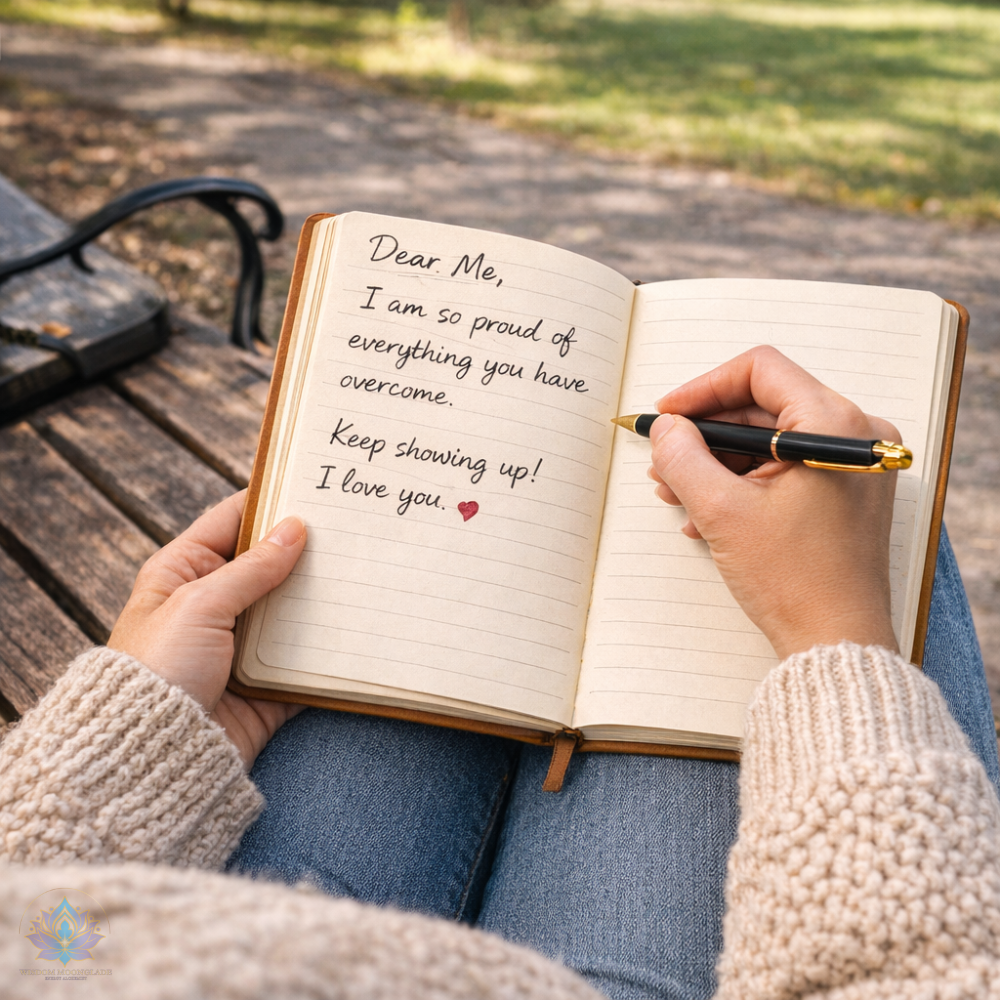 Dear Me,
I am so proud of
everything you have
overcome.
Keep showing up!
I love you.
WISDOM MOONGLADE